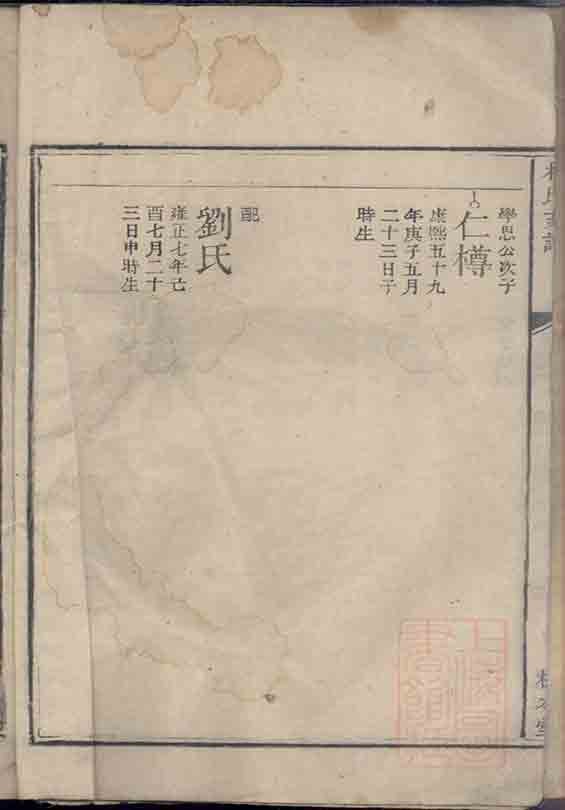 學思公次子
仁樽
康熙五十九
年庚子五月
二十三日子
時生
配
劉氏
雍正七年己
酉七月二十
三日申時生